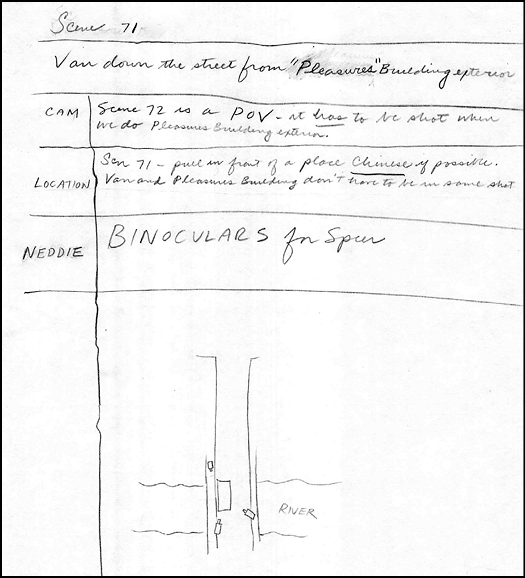 Scene 71
Van down the street from "Pleasures" Building exterior
CAM
Scene 72 is a POV - it has to be shot when
we do Pleasures Building exterior.
LOCATION
Scn 71 - pull in front of a place Chinese if possible.
Van and Pleasures Building don't have to be in same shot
NEDDIE
BINOCULARS for Speer
RIVER